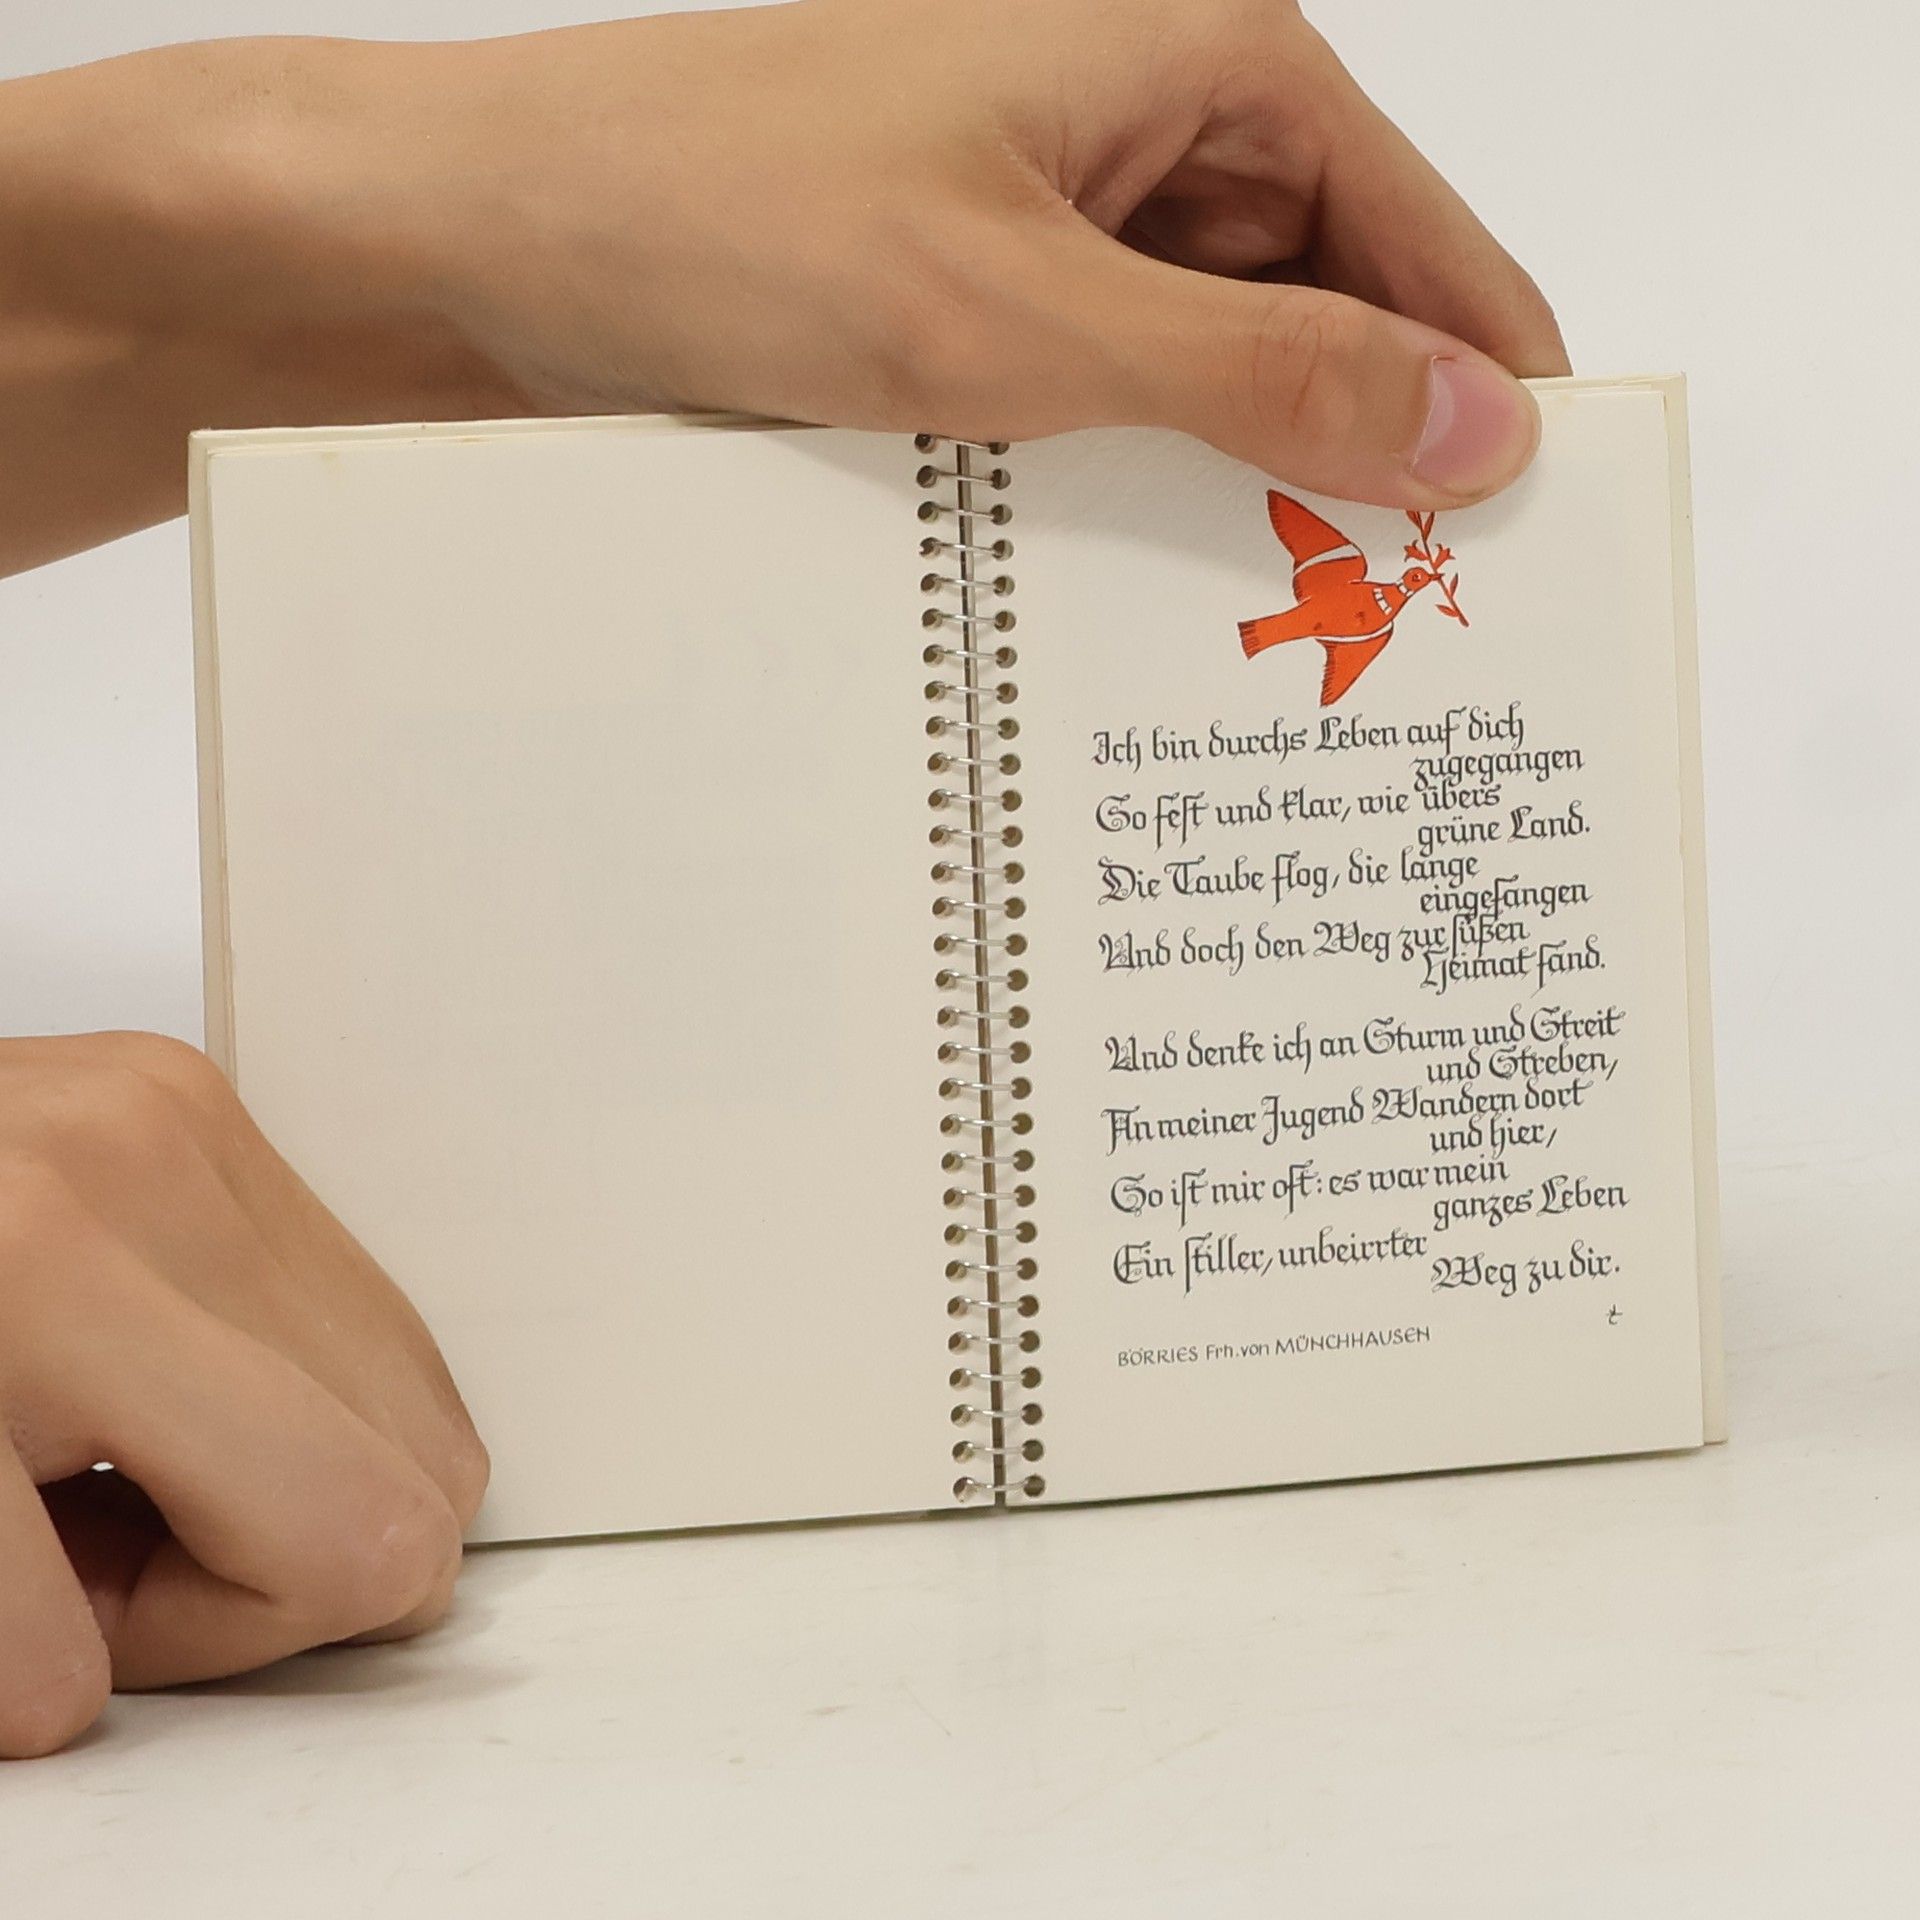 Ich bin durchs Leben auf dich
zugegangen
So fest und klar, wie übers
grüne Land.
Die Taube flog, die lange
eingefangen
Und doch den Weg zur süßen
Heimat fand.
Und denke ich an Sturm und Streit
und Streben,
An meiner Jugend Wandern dort
und hier,
So ist mir oft: es war mein
ganzes Leben
Ein stiller, unbeirrter
Weg zu dir.
BÖRRIES Frh. von MÜNCHHAUSEN